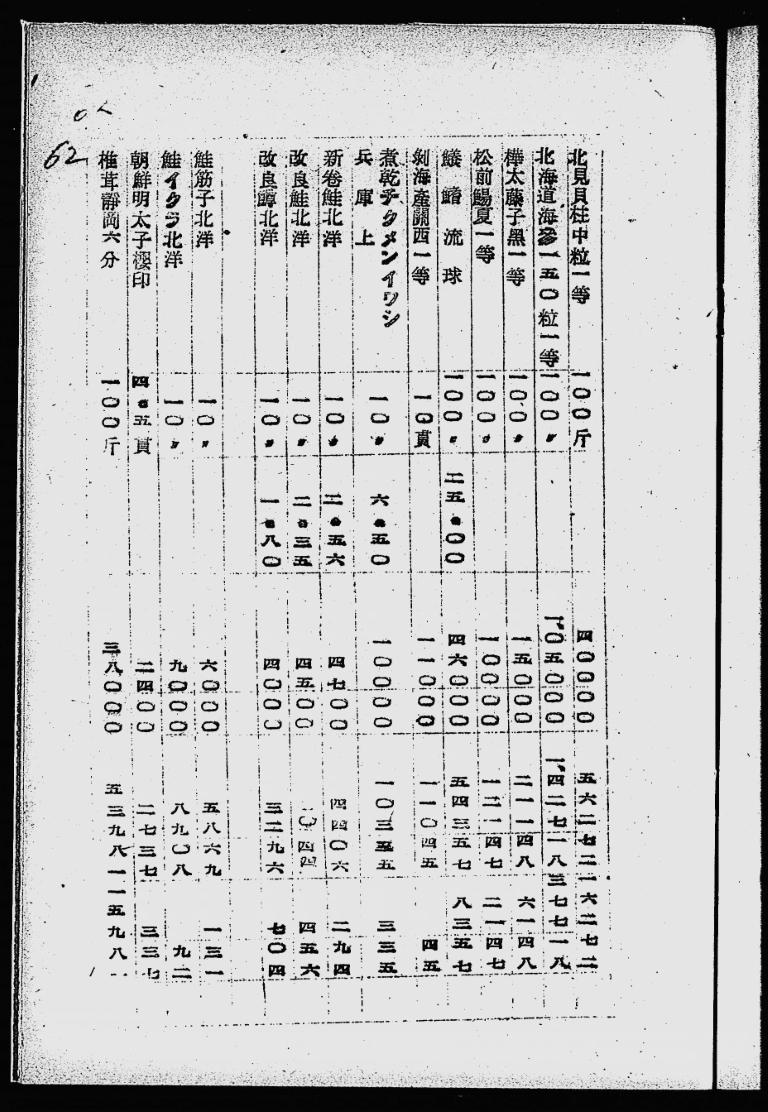 北見貝柱中粒一等 一〇〇斤 四〇〇〇〇 五六二七二 一六二七二
北海道海參一五〇粒一等 一〇〇〃 一、〇五〇〇〇 一、四二七一八 三七七一八
樺太藤子黑一等 一〇〇〃 一五〇〇〇 二一一四八 六一四八
松前鯣夏一等 一〇〇〃 一〇〇〇〇 一二一四七 二一四七
鱶鰭流球 一〇〇〃 二五.〇〇 四六〇〇〇 五四三五七 八三五七
剝海產關西一等 一〇貫 一一〇〇〇 一一〇四五 四五
煮乾チクメンイワシ
兵庫上 一〇〃 六.五〇 一〇〇〇〇 一〇三三五 三三五
新卷鮭北洋 一〇〃 二.五六 四七〇〇 四四〇六 二九四
改良鮭北洋 一〇〃 二.三五 四五〇〇 〇四四 四五六
改良鱒北洋 一〇〃 一.八〇 四〇〇〇 三二九六 七〇四
鮭筋子北洋 一〇〃 六〇〇〇 五八六九 一三一
鮭イクラ北洋 一〇〃 九〇〇〇 八九〇八 九二
朝鮮明太子櫻印 四.五貫 二四〇〇 二七三七 三三七
椎茸靜岡六分 一〇〇斤 三八〇〇〇 五三九八一 一五九八一
62